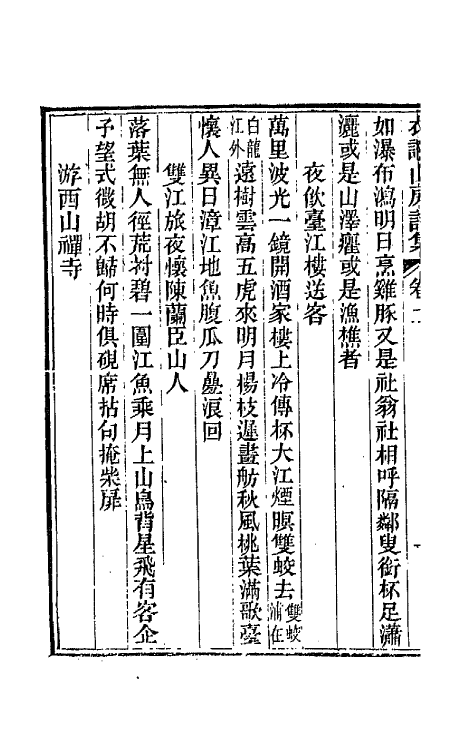 山房詩集 卷
如瀑布瀉明日烹雞豚又是社翁社相呼隔鄰叟銜杯足瀟
灑或是山澤癯或是漁樵者
夜飲臺江樓送客
萬里波光一鏡開酒家樓上冷傳杯大江煙暝雙蛟去雙蛟浦在
白龍江外遠樹雲高五虎來明月楊枝遲畫舫秋風桃葉滿歌臺
懷人異日漳江地魚腹瓜刀疊浪回
雙江旅夜懷陳蘭臣山人
落葉無人徑荒衬碧一圍江魚乘月上山鳥背星飛有客企
予望式微胡不歸何時俱硯席拈句掩柴扉
游西山禪寺